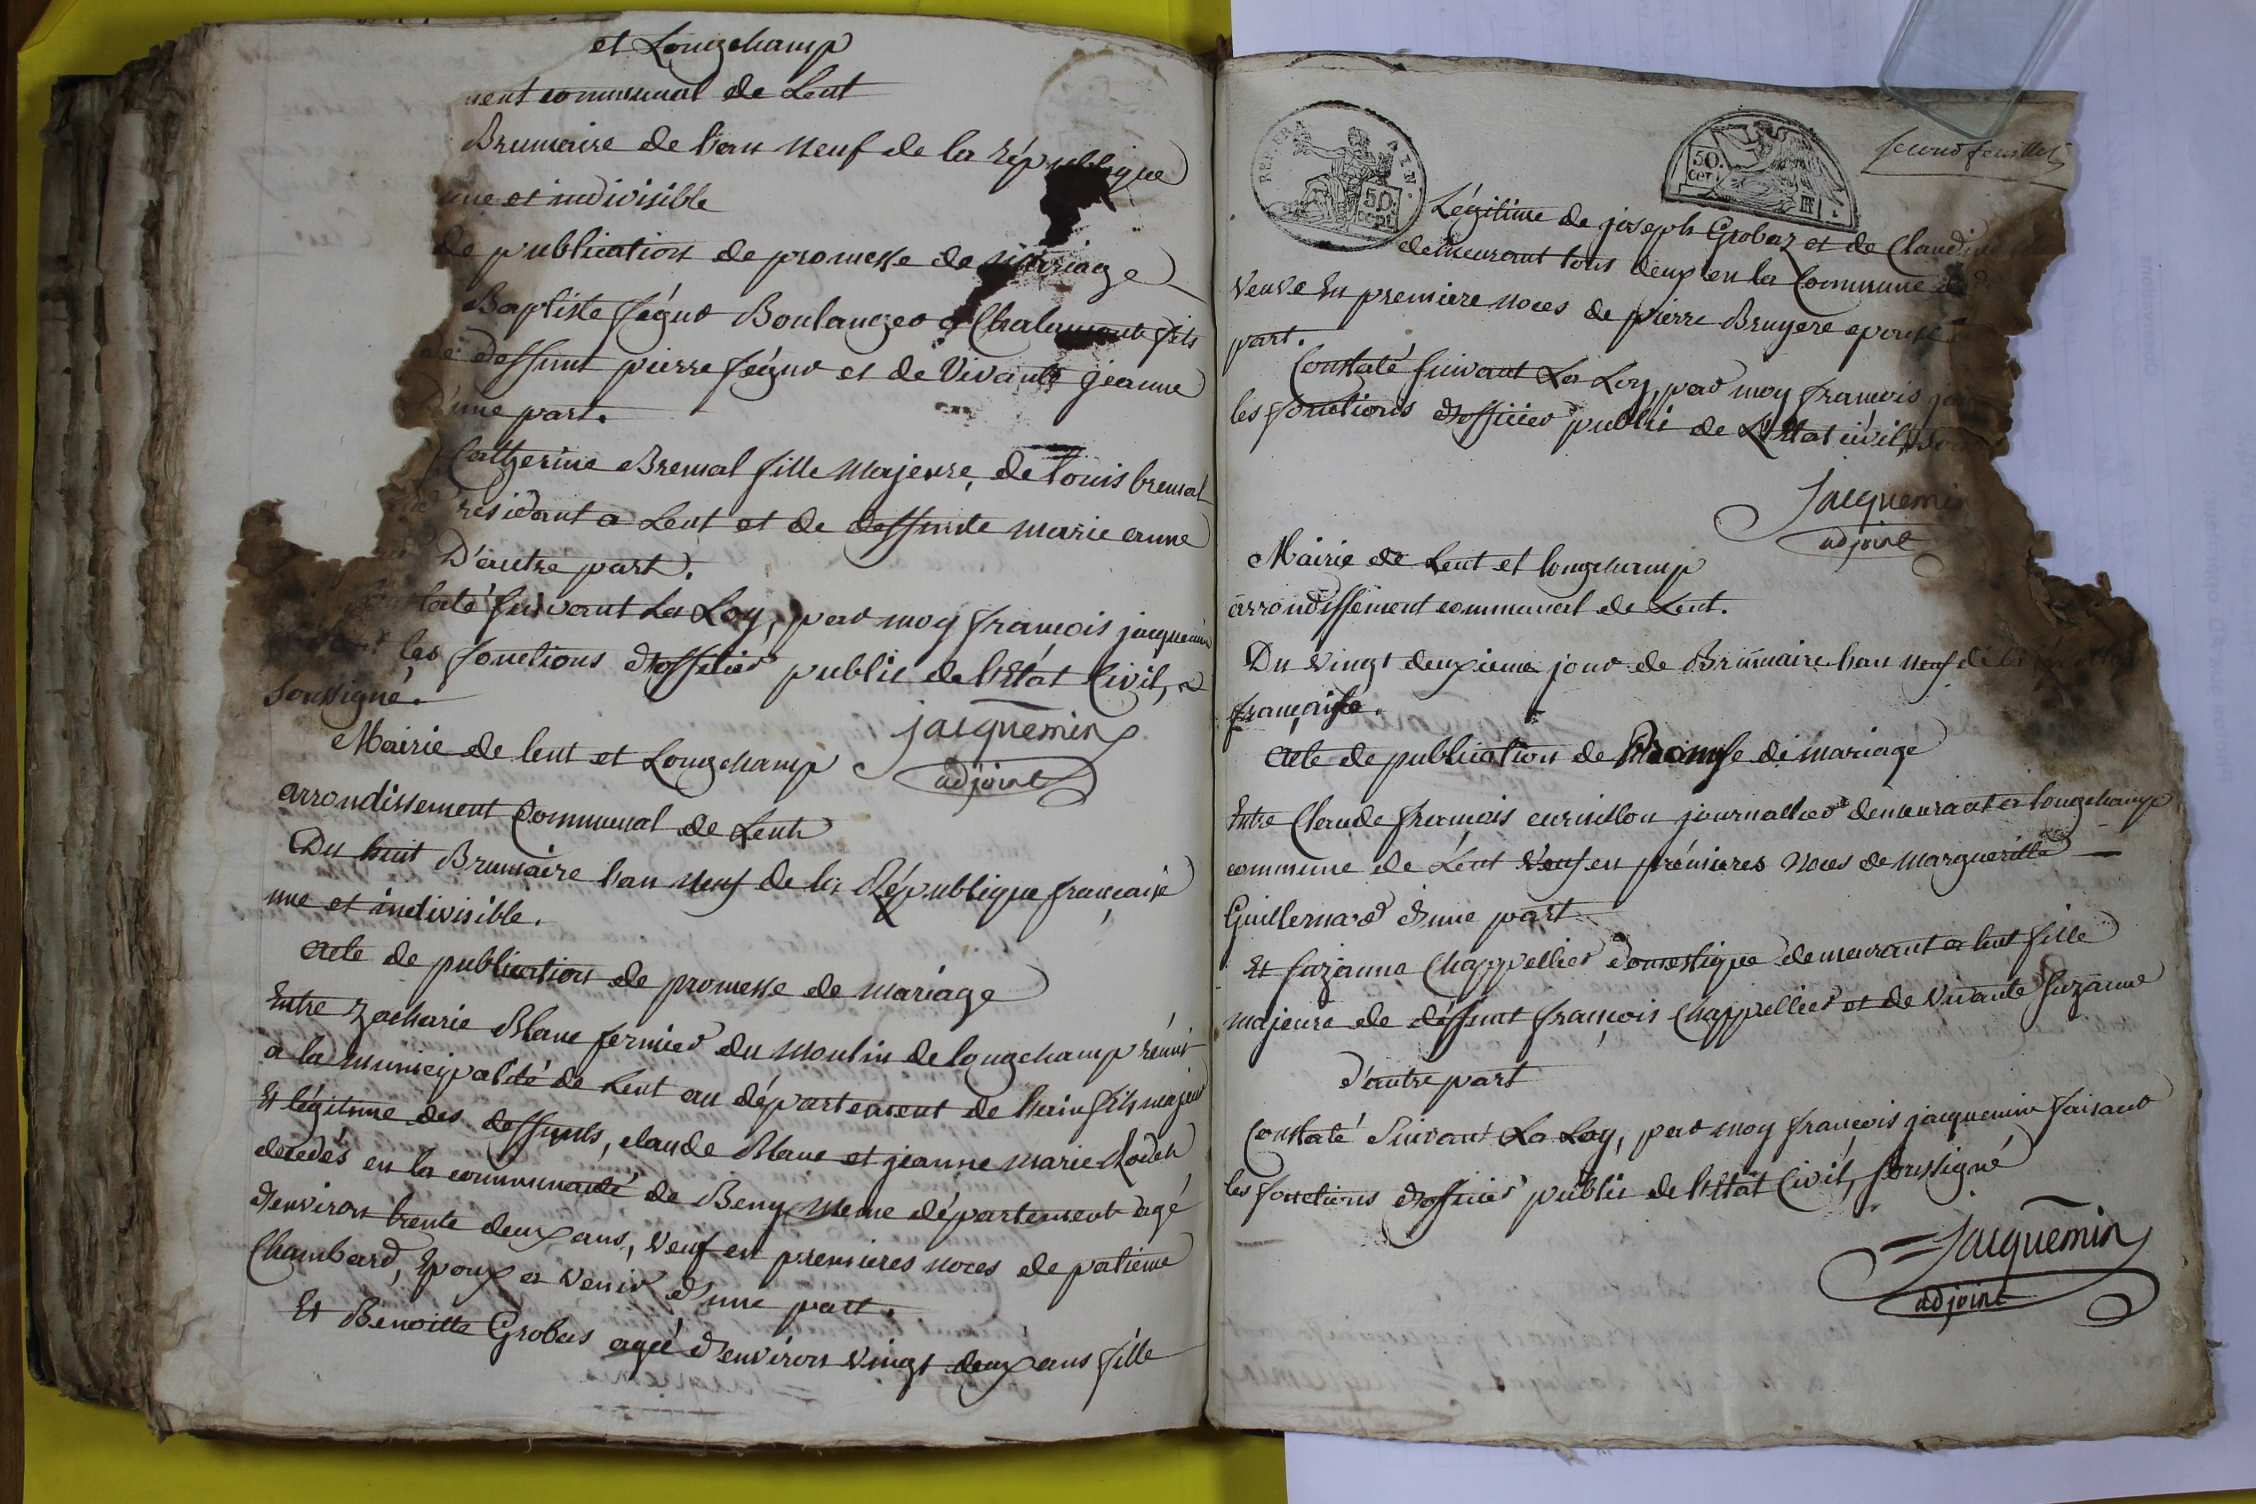 et Longchamp
ment communal de Lent
Brumaire de l'an neuf de la république
une et indivisible
de publication de promesse de mariage
Baptiste Boulanger a fils
deffunt pierre et de Vivante jeanne
D'une part.
Catherine Brevat fille majeure, de Louis brevat
résidant a Lent et de deffunte marie anne
D'autre part.
suivant La Loy, par moy françois jacquemin
les fonctions d'officier public de l'Etat Civil,
soussigné.
jacquemin
adjoint
Mairie de lent et Longchamp
arrondissement Communal de Lent
Du huit Brumaire l'an neuf de la République française
une et indivisible.
acte de publication de promesse de mariage
Entre Zacharie Blanc fermier du moulin de longchamp réuni
a la municipalité de Lent au département de l'ain fils majeur
Et légitime des deffunts, claude Blanc et jeanne marie
decedés en la communauté de Beny meme département agé
d'environ trente deux ans, veuf en premieres noces de
Chambard, Epoux a venir d'une part.
Et Benoitte Grobas agée d'environ vingt deux ans fille
REP. FRA
AIN.
50.
cent
50.
cen.
second feuillet
Légitime de joseph Grobaz et de
demeurant tous deux en la Commune
veuve En premiere noces de pierre Bruyere epouse
part.
Constaté suivant La Loy, par moy françois
les fonctions d'officier public de L'Etat civil,
Jacquemin
adjoint
Mairie de Lent et longchamp
arrondissement communal de Lent.
Du vingt deuxieme jour de Brumaire l'an neuf de la
française.
acte de publication de Promesse de mariage
Entre Claude françois curvillon journallier demeurant a longchamp
commune de Lent Veuf en prémieres noces de marguerille
Guillemard d'une part
Et suzanne Chappellier domestique demeurant a lent fille
majeure de déffunt françois Chappellier et de vivante suzanne
d'autre part
Constaté Suivant La Loy, par moy françois jacquemin faisant
les fonctions d'officier public de l'Etat Civil, soussigné
Jacquemin
adjoint